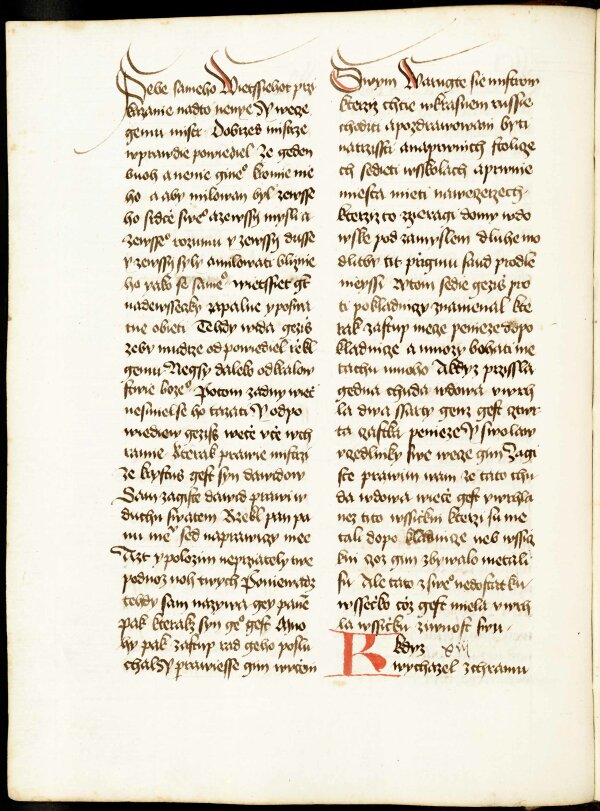 Sebe sameho Wietssiehot pzi
kazanie nadto nenye Y wece
gemu mistr Dobrzes mistrze
wprawdie powiediel Ze geden
buoh a nenie gine° kromie nie
ho a aby milowan byl zewsse
ho srdce swe° azewssy mysli a
zewsse° rozumu y zewssy dusse
y zewssy syly amilowati bliznie
ho yako se same° wietssiet gt
nadewsseczky zapalne y posma
tne obieti Tehdy uzda gezis
zeby mudrze od powiediel rzekl
gemu Negsy daleko odkralow
stwie boze° Potom zadny wiec
nesmiel se ho tazati Y odpo
wiediew geziss wece vcze wch
ramie Kterak prawie mistrzi
ze krystus gest syn dawidow
Sam zagiste dawid prawi w
duchu swatem Rzekl pan pa
nu me° sed naprawiczy mee
Azt y polozim neprzately twe
podnoz noh twych Poniewadz
tehdy sam nazywa gey pane
pak kterakz syn ge° gest A mno
hy pak zastup rad geho poslu
chal Y prawiesse gim wuczen
Swym Warugte sie mistrow
kterziz chtie wkrasnem russie
choditi apozdrawowani byti
natrzissti anaprwnich stolicze
ch sedieti wsskolach aprwnie
miesta mieti naweczerzech
kterziz to zzieragi domy wdo
wske pod zamyslem dluhe mo
dlitby tit przigmu saud prodle
nieyssi Zatom sedie gezis pro
ti pokladnicy znamenal kte
rak zastup mece penieze dopo
kladnicze a mnozy bohati me
tachu mnoho A kdyz przissla
gedna chuda wdowa vwrh
la dwa ssarty genz gest cztwr
ta czastka penieze Y swolaw
vczedlniky swe wece gim Zagi
ste prawim wam ze tato chu
da wdowa wiece gest vwrhla
nez tito wssickni kterzi su me
tali dopo kladnicze neb wssic
kni coz gim zbywalo metali
su Ale tato z swe° nedostatku
wsseczko coz gest miela vwrh
la wssicku ziwnost swu
Kdyz xiii
wychazel zchramu